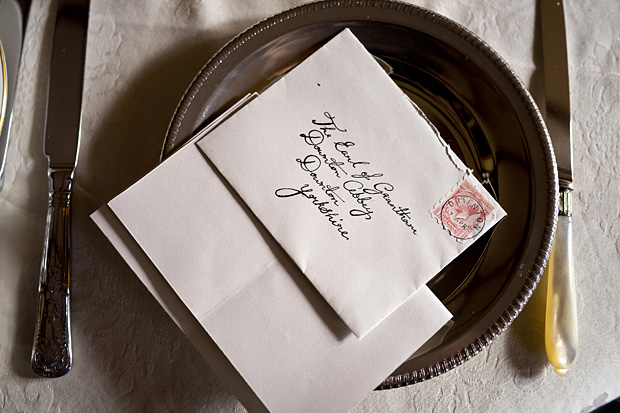 The Earl of Grantham
Downton Abbey,
Downton
Yorkshire.